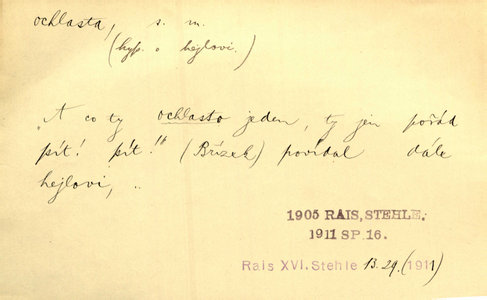 ochlasta, s. m.
(hyp. o hejlovi.)
„A co ty ochlasto jeden, ty jen pořád
pít! pít!" (Břízek) povídal dále
hejlovi, ..
1905 RAIS, STEHLE.
1911 SP. 16.
Rais XVI. Stehle 13.29. (1911)